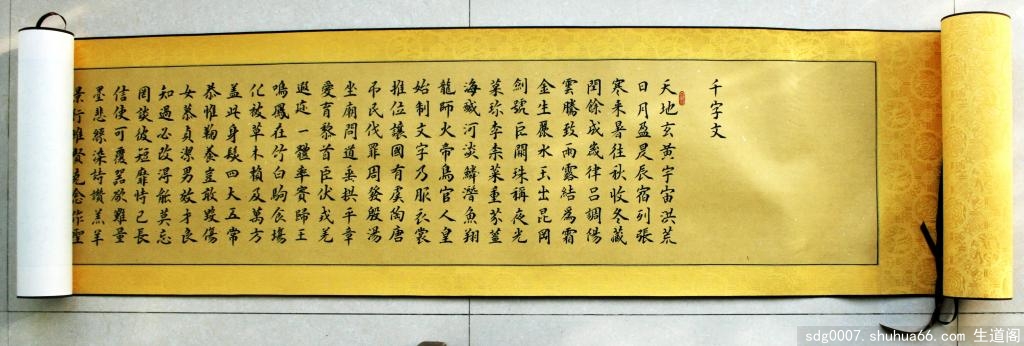 千字文
天地玄黃宇宙洪荒
日月盈昃辰宿列張
寒来暑往秋收冬藏
閏餘成歲律吕調陽
雲騰致雨露結為霜
金生麗水玉出崑岡
劍號巨闕珠稱夜光
菓珍李柰菜重芥薑
海鹹河淡鱗潛魚翔
龍師火帝鳥官人皇
始制文字乃服衣裳
推位讓國有虞陶唐
吊民伐罪周發殷湯
坐廟問道垂拱平章
愛育黎首臣伏戎羌
遐迩一體率賓歸王
鳴鳳在竹白駒食場
化被草木賴及萬方
盖此身髮四大五常
恭惟鞠養豈敢毀傷
女慕貞潔男效才良
知過必改得能莫忘
罔談彼短靡恃己長
信使可覆器欲難量
墨悲絲染詩讚羔羊
景行維賢克念作聖
sdg0007.shuhua66.com 生道阁